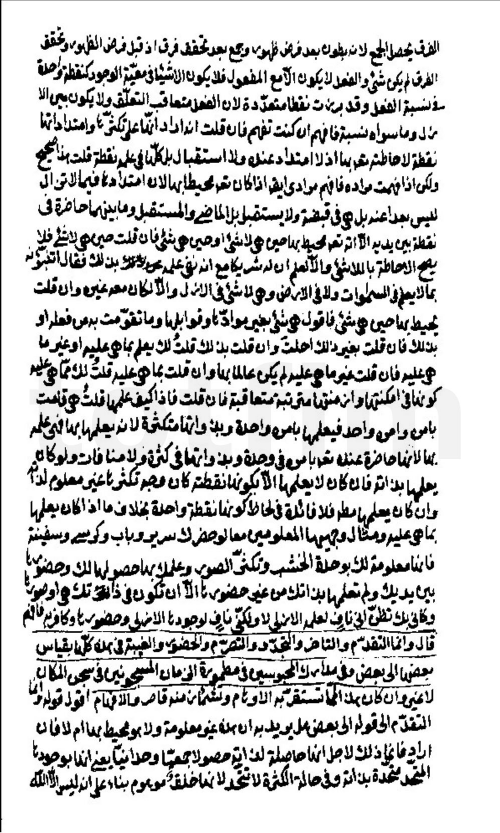 الفرق يحصل الجمع لانه بطون بعد فرض ظهور وجمع بعد تحقق فرق اذ قبل فرض الظهور وتحقق
الفرق لم يكن شئ والفعل لا يكون الا مع المفعول فلا يكون الاشياء في معيّة الوجود كنقطة واحدة
في نسبة الفعل وقد برزت نقطا متعدّدة لان الفعل متعاقب التعلّق ولا يكون بين الا
زل وما سواه نسبة فافهم ان كنت تفهم فان قلت انها على تكثّرها وامتداداتها
نقطة لاحاطته بها اذ لا امتداد عنده ولا استقبال بل كلّها في علمه نقطة قلت هذا صحيح
ولكن اذا فهمت مراده فافهم مرادي ايضا اذا كان محيطا بها لان امتدادها فيما لا يزال
ليس بعدا عنه بل هي في قبضته ولا يستقبل بل الماضي والمستقبل وما بينهما حاضرة في
نقطة بين يديه الا انه محيط بها حين هي لا شئ او حين هي شئ فان قلت حين هي لا شئ فلا
يصح الاحاطة باللاشئ والا لعلم ان له شريكا مع انه نفى علمه بذلك فقال اتنبّئونه
بما لا يعلم في السموات ولا في الارض وهي لا شئ في الازل والا لكان معه غيره وان قلت
يحيط بها حين هي شئ فاقول هي شئ بغير موادّها وقوابلها وما تقوّمت به من فعله او
بذلك فان قلت بغير ذلك احلت وان قلت بذلك قلت لك يعلم بما هي عليه او غير ما
هي عليه فان قلت غير ما هي عليه لم يكن عالما بها وان قلت بما هي عليه قلت لك مما هي عليه
كونها في امكنتها وازمنتها مترتبة متعاقبة فان قلت فاذا كيف علمها قلت هي قامت
بامر وامره واحد فيعلمها بامر واحدة وبذواتها متكثرة لانه يعلمها بما هي علمه
بها لانها حاضرة عنده بامر في وحدة وبذواتها في كثرة ولا منافات ولو كان
يعلمها بذاته فان كان لا يعلمها الا كونها نقطة كان وجه تكثرها غير معلوم لذاته
وان كان يعلمها مطلقا فلا فائدة في لحاظ كونها نقطة واحدة بخلاف ما اذا كان يعلمها
بما هي عليه ومثال وجهيها المعلومين معا لو حضرك سرير وباب وكرسي وسفينة
فانها معلومة لك بوحدة الخشب وتكثّر الصور وعلمك بها حصولها لك وحضورها
بين يديك ولم تعلمها بذاتك من غير حضورها الا ان تكون في ذاتك هي او صورها
وكاني بك تظنّ انّي ناف لعلم الازلي لا ولكنّي ناف لوجودها الازلي وحضورها وكافر به فافهم
قال وانما التقدّم والتاخر والتجدّد والتصرّم والحضور والغيبة في هذه كلّها بقياس
بعضها الى بعض وفي مدارك المحبوسين في مطمورة الزمان المسجونين في سجن المكان
لا غير وان كان هذا لمما تستغربه الاوهام وتشمئز منه قاصر والافهام اقول قوله وانما
التقدّم الى قوله الى بعض هل يريد به ان هذه غير معلومة ولا هو محيط بها ام لا فان
اراد فانما ذلك لاجل انها حاصلة لذاته حصولا جمعيّا وحدانيّا يعني انها بوجودها
المتجدّد متحدة بذاته وفي حالة الكثرة لا تتّحد لانها خلق موهوم بناء على انه ليس الا الله